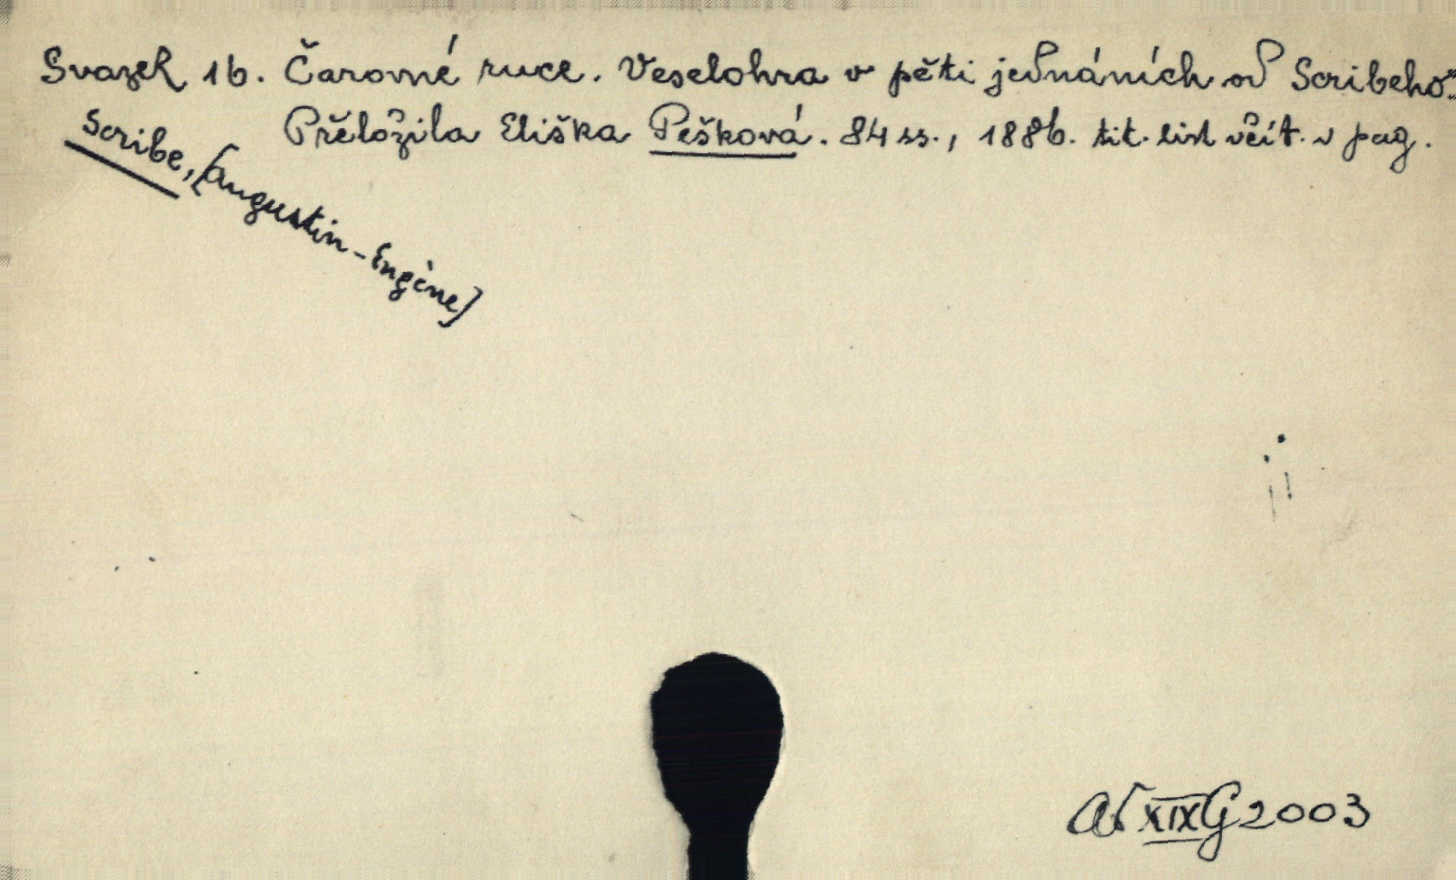 Svazek 16. Čarovné ruce. Veselohra v pěti jednáních od Scribeho.
Přeložila Eliška Pešková. 84 ss., 1886. tit. list včít. v pag.
Scribe, [Augustin-Eugène]
ad XIX G 2003